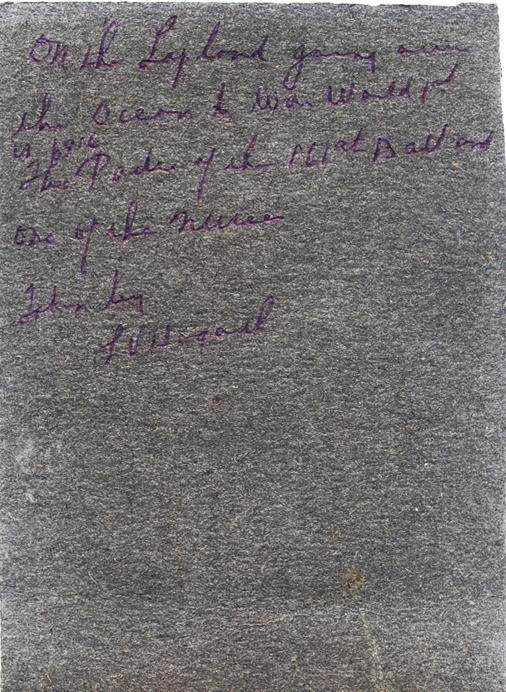 On the Lapland going over
the Ocean to War World pt
1916
The Padre of the 161st Batt and
one of the nurses
Taken by